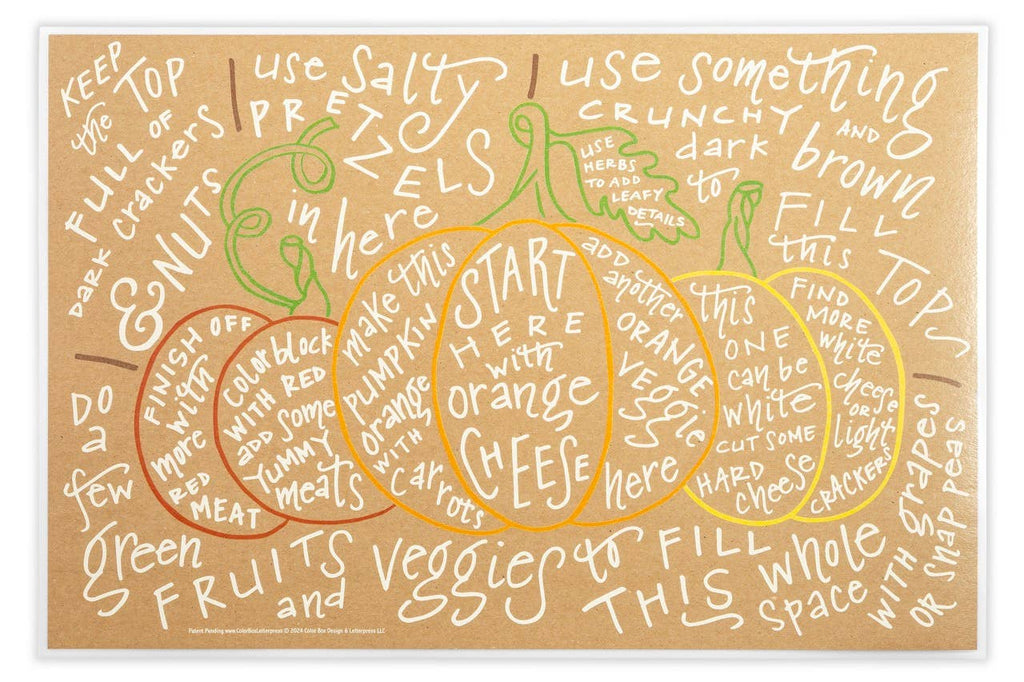 KEEP
the TOP
FULL OF
DARK crackers
& NUTS
use salty
PRETZELS
in here
use something
CRUNCHY AND
dark brown
to FILL
this TOPS
USE
HERBS
TO ADD
LEAFY
DETAILS
FINISH OFF
with
more
RED
MEAT
color block
WITH RED
ADD some
YUMMY
meats
make this
PUMPKIN
orange
WITH
carrots
START
HERE
with
orange
CHEESE
ADD
another
ORANGE
VEGGIE
here
this
ONE
can be
white
CUT SOME
HARD
cheese
FIND
MORE
white
cheese
OR
light
CRACKERS
DO
a
few
green
FRUITS
and
veggies to FILL
THIS whole
space
WITH grapes
OR SNAP PEAS
Patent Pending www.ColorBoxLetterpress © 2024 Color Box Design & Letterpress LLC